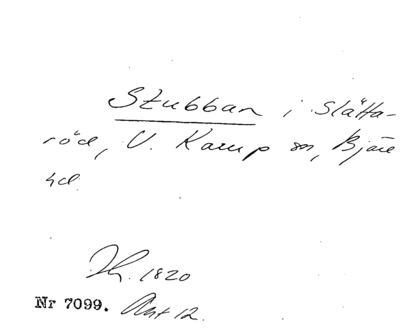 Stubban i Slätta-
röd, V. Karup sn, Bjäre
hd.
1820
Nr 7099. Ant 12.